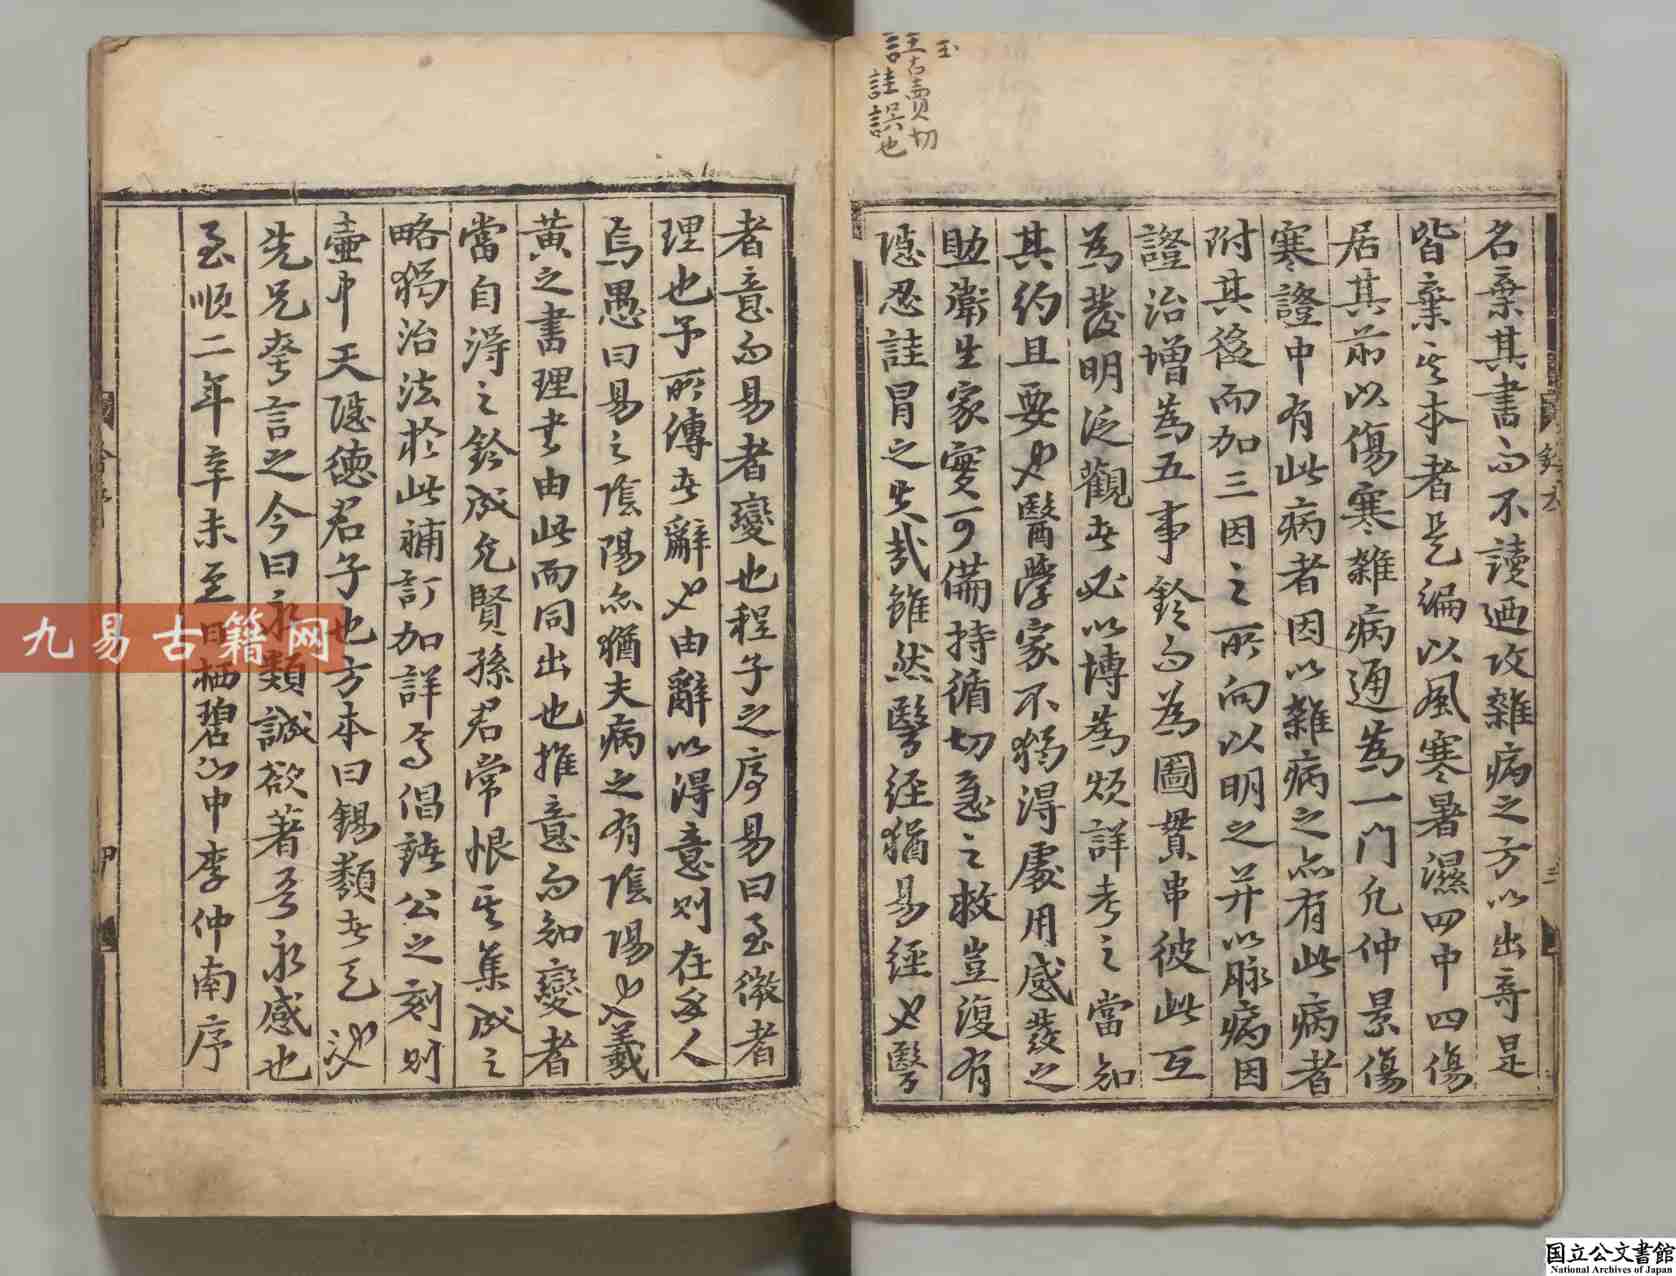 玉
王古賣切
註註誤也
名棄其書而不讀迺攻雜病之方以出奇是
皆棄其本者是編以風寒暑濕四中四傷
居其前以傷寒雜病通為一門允仲景傷
寒證中有此病者因以雜病之亦有此病者
附其後而加三因之所向以明之并以脉病因
證治增為五事鈐而為圖貫串彼此互
為發明泛觀者必以博為煩詳考之當知
其約且要也醫學家不獨得處用感發之
助衛生家寔可備持循切急之救豈復有
隱忍詿冒之失哉雖然醫經猶易經也醫
者意而易者變也程子之序易曰至微者
理也予所傳者辭也由辭以得意則在乎人
焉愚曰易之陰陽亦猶夫病之有陰陽也羲
黃之書理書由此而同出也推意而知變者
當自得之鈐成允賢孫君常恨其集成之
略獨治法於此補訂加詳焉倡諸公之刻則
壺中天隱德君子也方本曰錫類者已
先兄嘗言之今曰永類誠欲著吾永感也
至順二年辛未至日栖碧山中李仲南序
九易古籍网
国立公文書館
National Archives of Japan